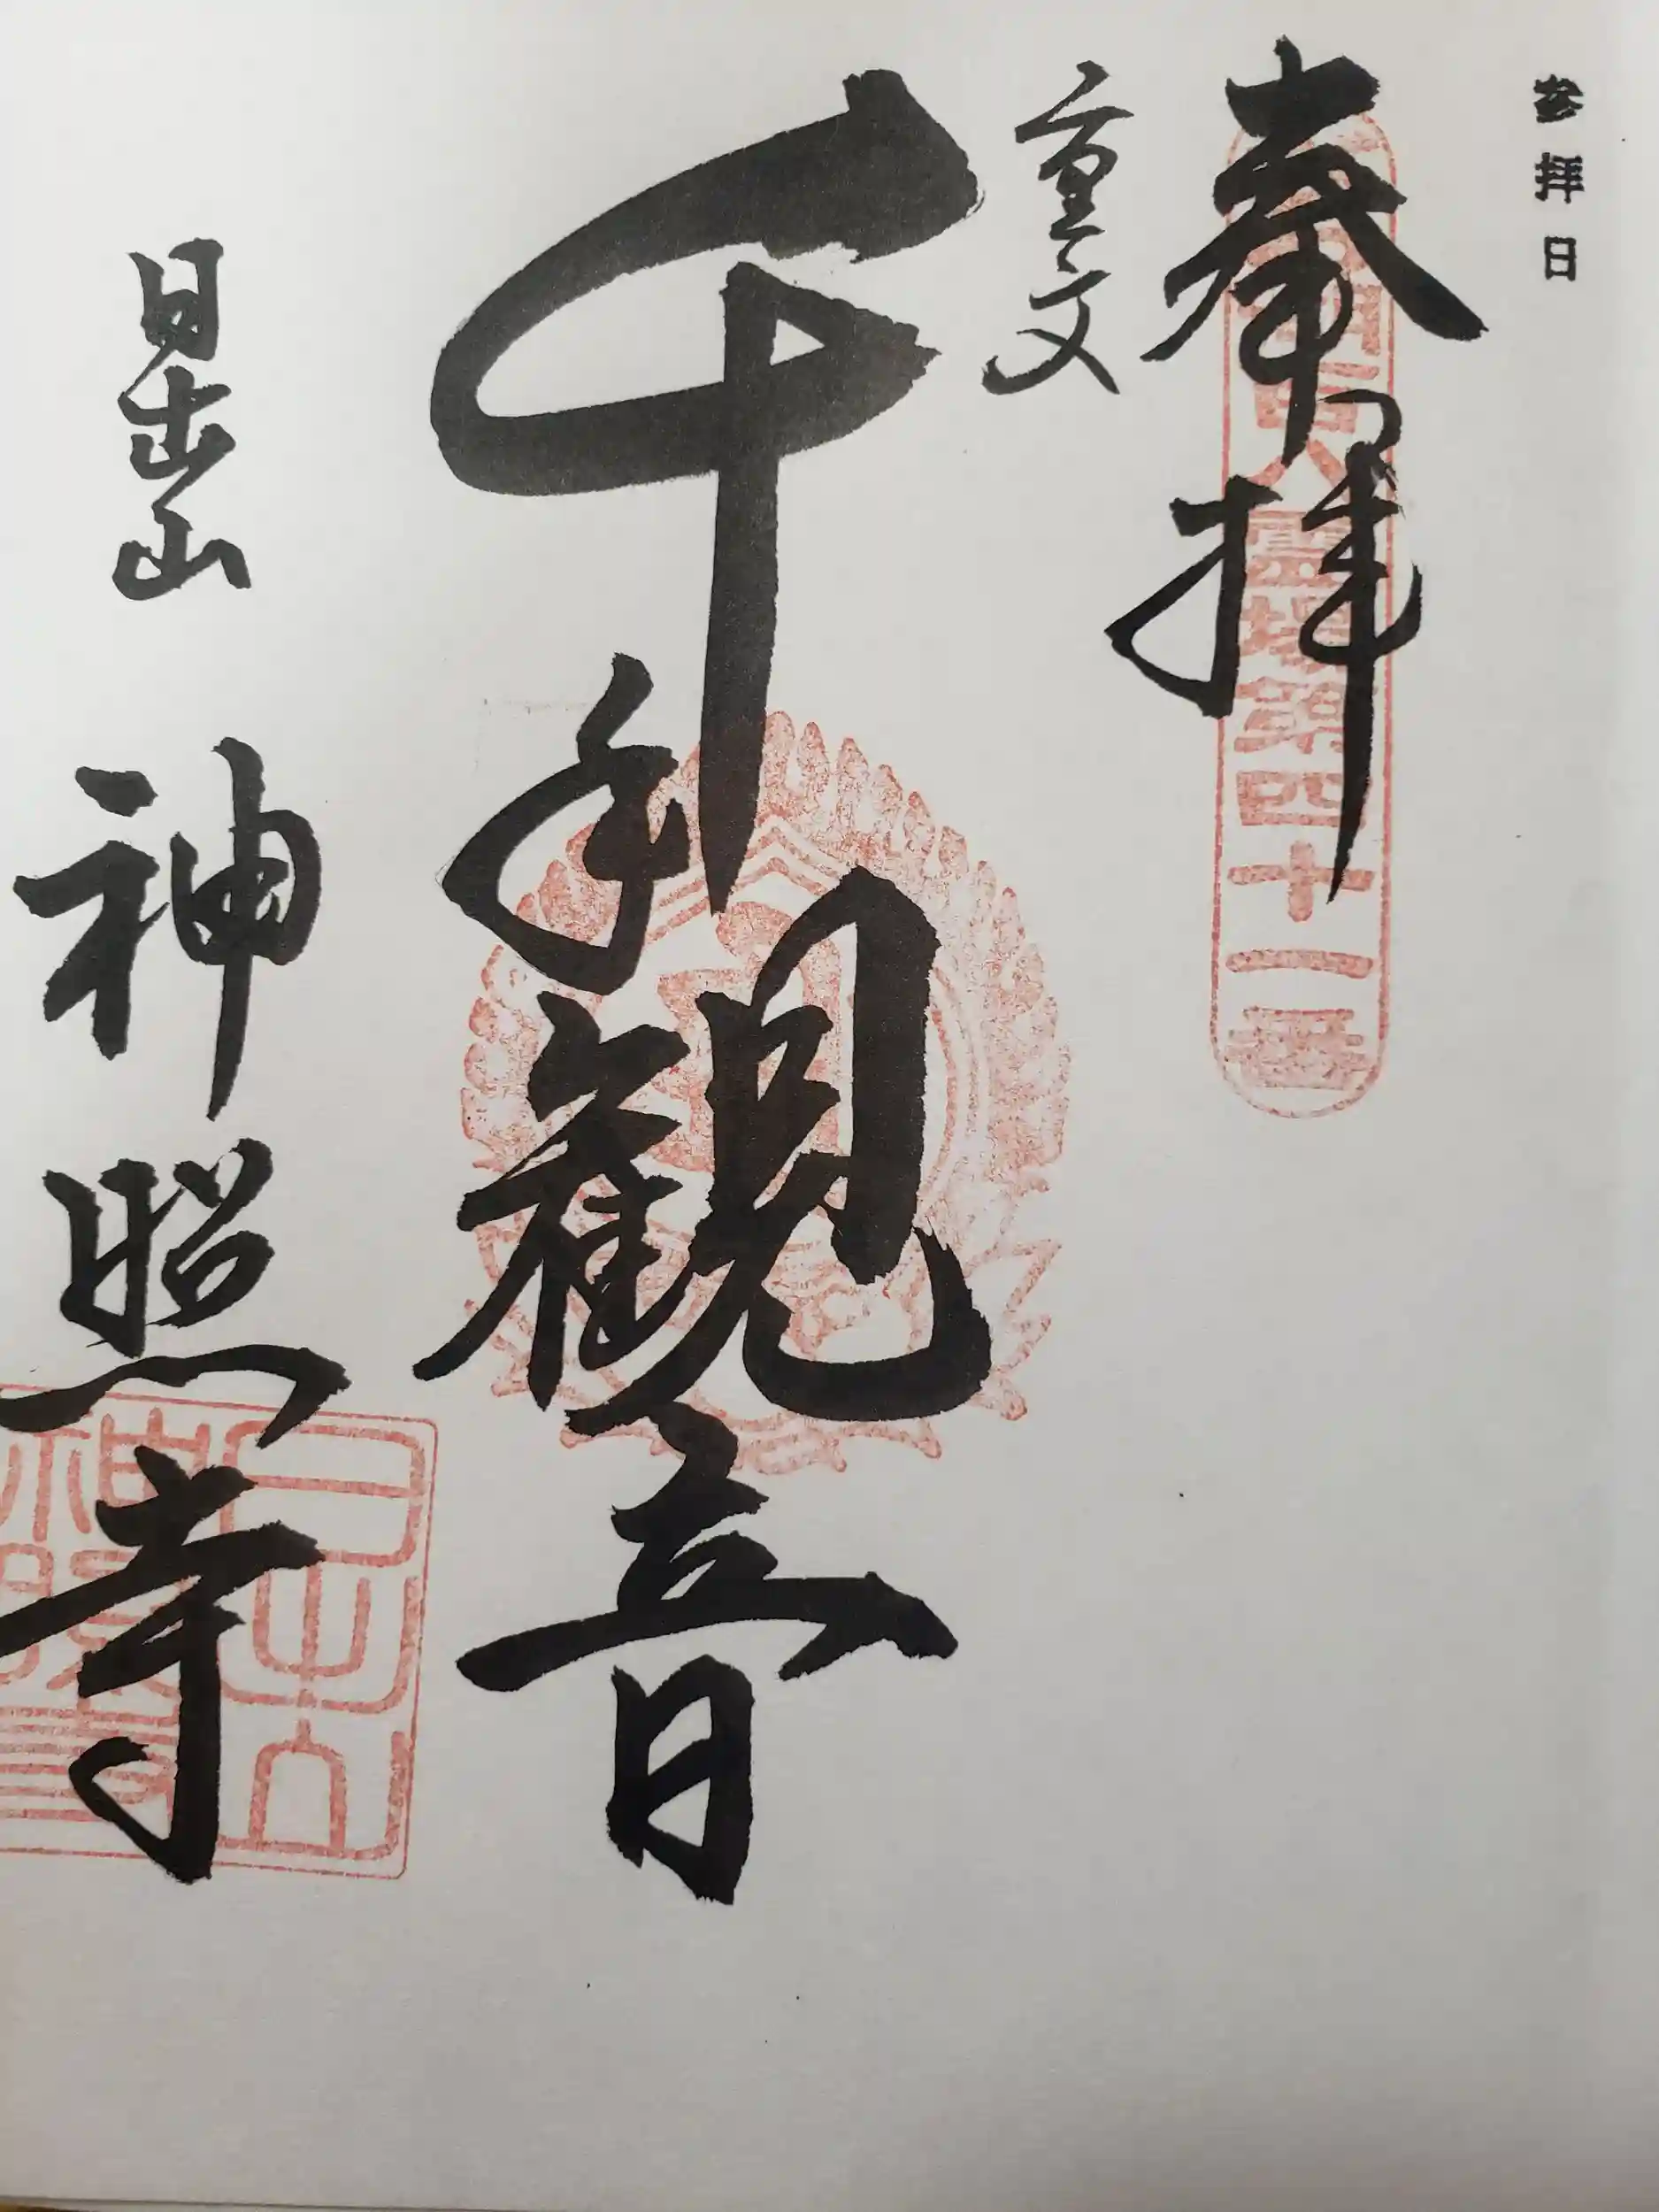 参拝日
奉拝
霊場第四十一番
重文
千手観音
日出山
神照寺